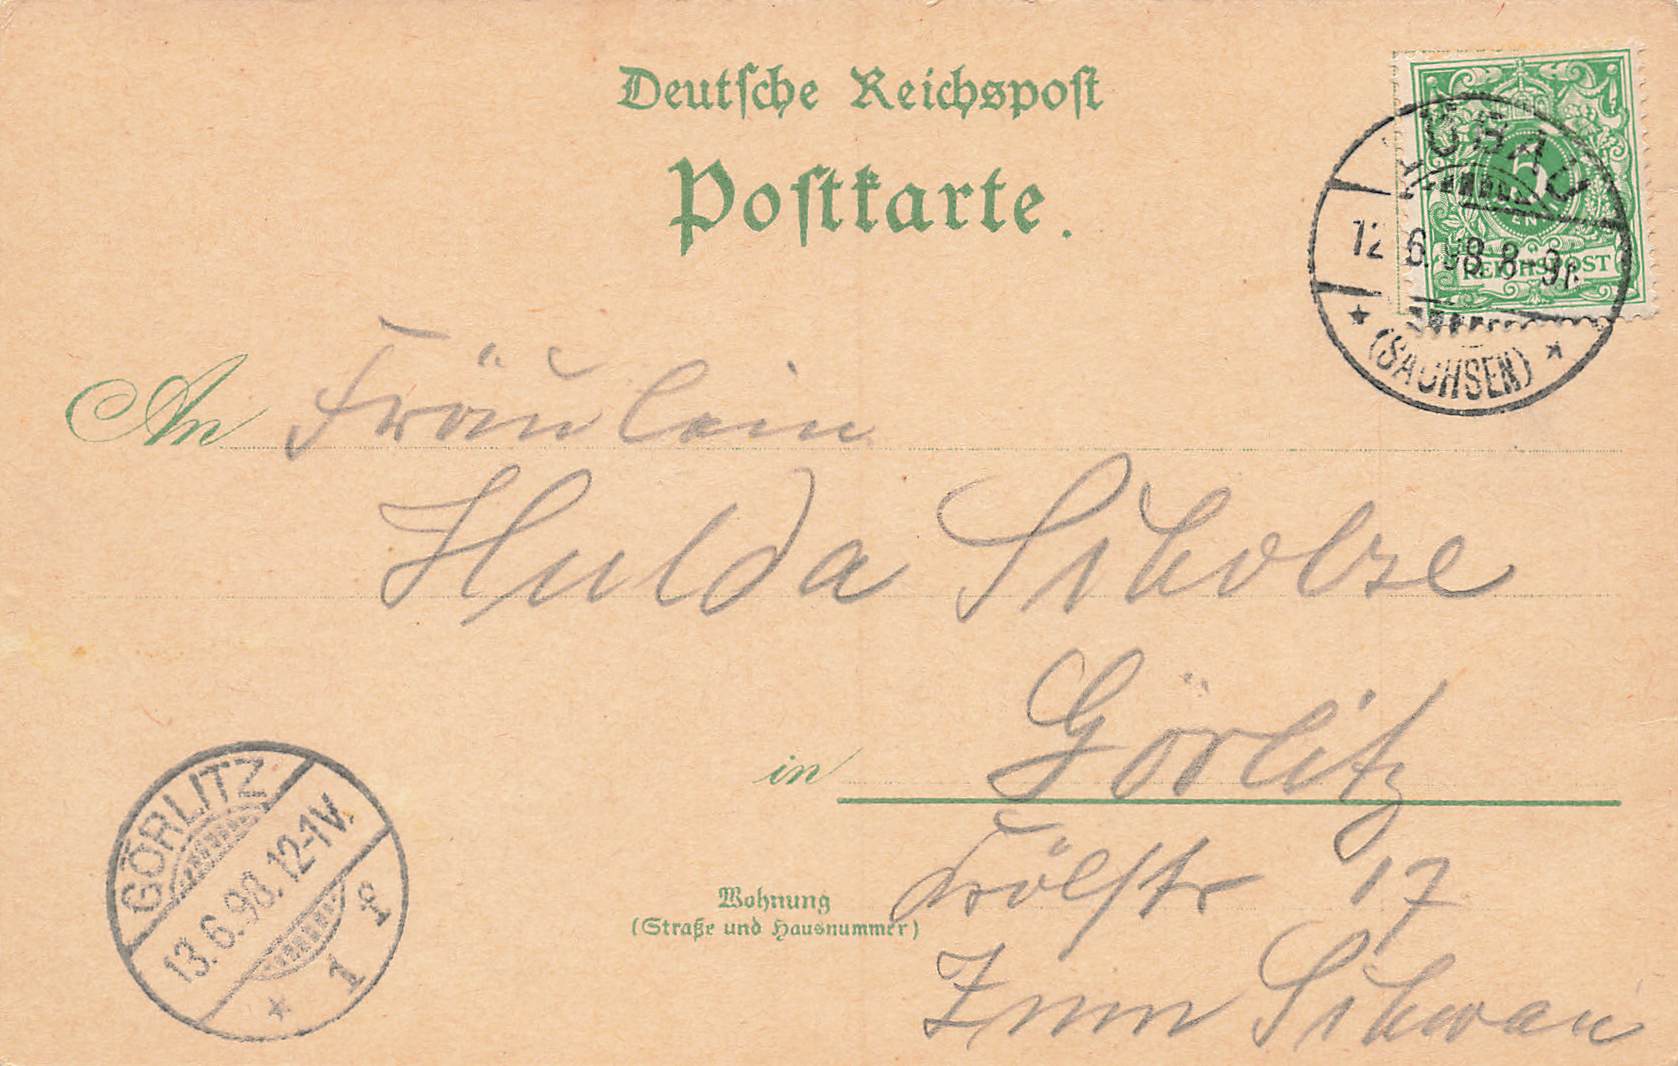 Deutsche Reichspost
Postkarte.
LÖBAU
12 6. 98 8-9N.
(SACHSEN)
5
REICHSPOST
An Fräulein
Hulda Scholze
in Görlitz
Wohnung
(Straße und Hausnummer)
17
Zum Schwan
GÖRLITZ
13.6.98.12-1V.
1 f